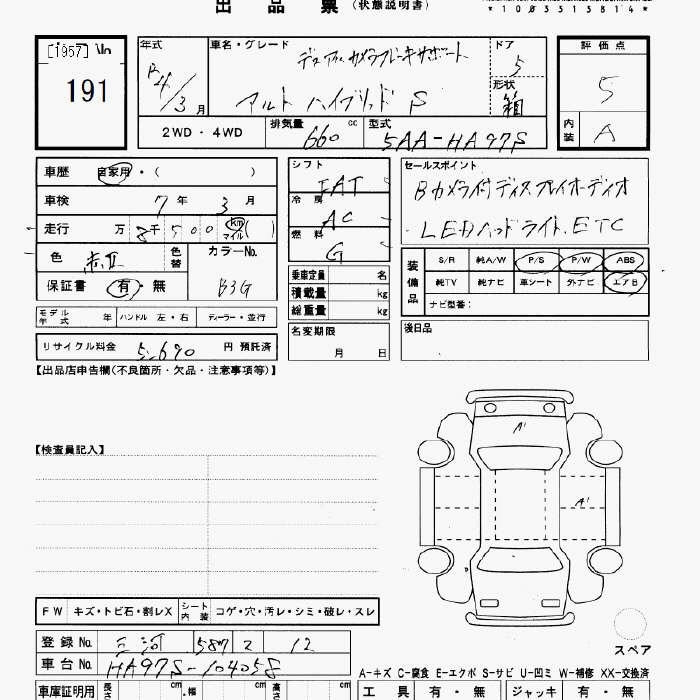 出品票（状態説明書）
*1003313814*
[1957] No
191
年式
R4/3月
車名・グレード
ディスプレイオーディオ カメラブレーキサポート
アルト ハイブリッド S
ドア
5
形状
箱
評価点
5
内装
A
2WD・4WD
排気量 660 cc
型式 5AA-HA97S
車歴 自家用・( )
車検 7年 3月
走行 万 8千500 km マイル( )
色 赤Ⅱ 色替
カラーNo. B3G
保証書 有・無
シフト FAT
冷房 AC
燃料 G
乗車定員 名
積載量 kg
総重量 kg
名変期限
月 日
セールスポイント
Bカメラ付ディスプレイオーディオ
LEDヘッドライト. ETC
装備品
S/R 純A/W P/S P/W ABS
純TV 純ナビ 革シート 外ナビ エアB
ナビ型番：
後日品
モデル年式 年 ハンドル 左・右 ディーラー・並行
リサイクル料金 5,690円 預託済
【出品店申告欄(不良箇所・欠品・注意事項等)】
【検査員記入】
A1
A1
スペア
FW キズ・トビ石・割レX シート内装 コゲ・穴・汚レ・シミ・破レ・スレ
登録No. 三河 587 こ 12
車台No. HA97S-104058
A-キズ C-腐食 E-エクボ S-サビ U-凹ミ W-補修 XX-交換済
車庫証明用 長さ cm ・幅 cm 高さ cm
工具 有・無 ジャッキ 有・無